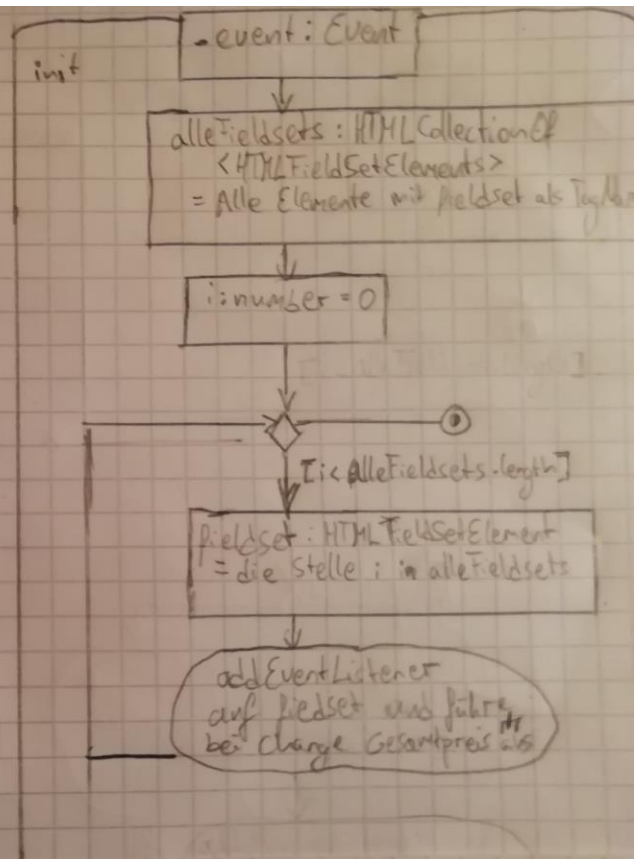 init
_event : Event
alleFieldsets : HTMLCollectionOf
<HTMLFieldSetElements>
= Alle Elemente mit fieldset als
i : number = 0
[i < alleFieldsets.length]
fieldset : HTMLFieldSetElement
= die Stelle i in alleFieldsets
addEventListener
auf fiedset und führe
bei change Gesamtpreis aus